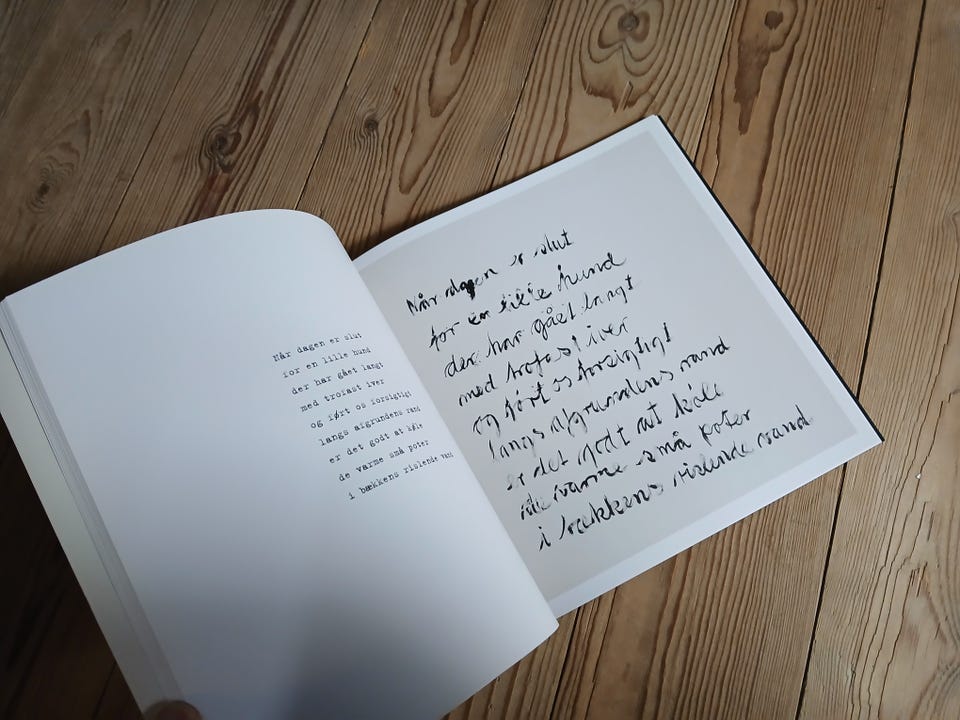 Når dagen er slut
for en lille hund
der har gået langt
med trofast iver
og ført os forsigtigt
langs afgrundens rand
er det godt at køle
de varme små poter
i bækkens rislende vand
Når dagen er slut
for en lille hund
der har gået langt
med trofast iver
og ført os forsigtigt
langs afgrundens rand
er det godt at køle
de varme små poter
i bækkens rislende vand